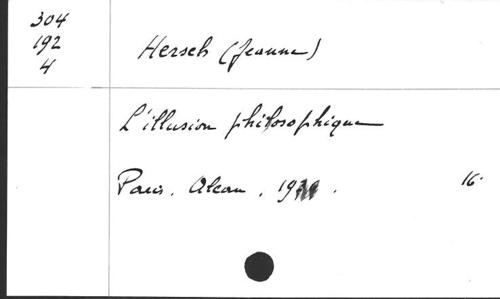 304
192
4
Hersch (Jeanne)
L'illusion philosophique
Paris. Alcan.
16°